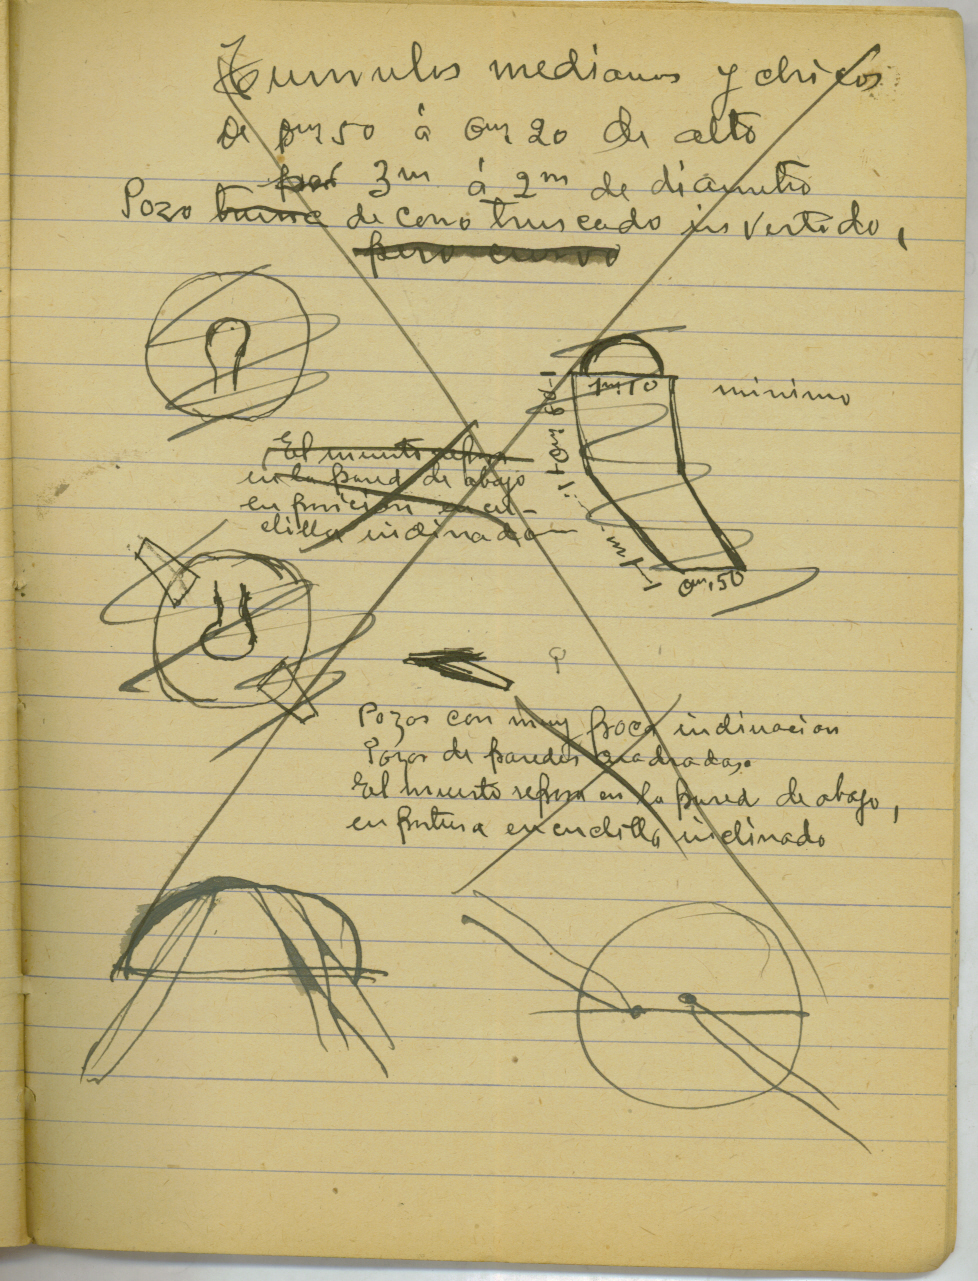 Tumulos medianos y chicos
de 0m,50 á 0m,20 de alto
por 3m á 2m de diámetro
Pozo de cono truncado invertido,
pero curvo
1m,10
minimo
El muerto reposa
en la pared de abajo
en posición en cu-
clilla inclinado
1m
0m,50
Pozos con muy poca inclinacion
Pozos de paredes cuadradas.
El muerto reposa en la pared de abajo,
en postura en cuclilla, inclinado